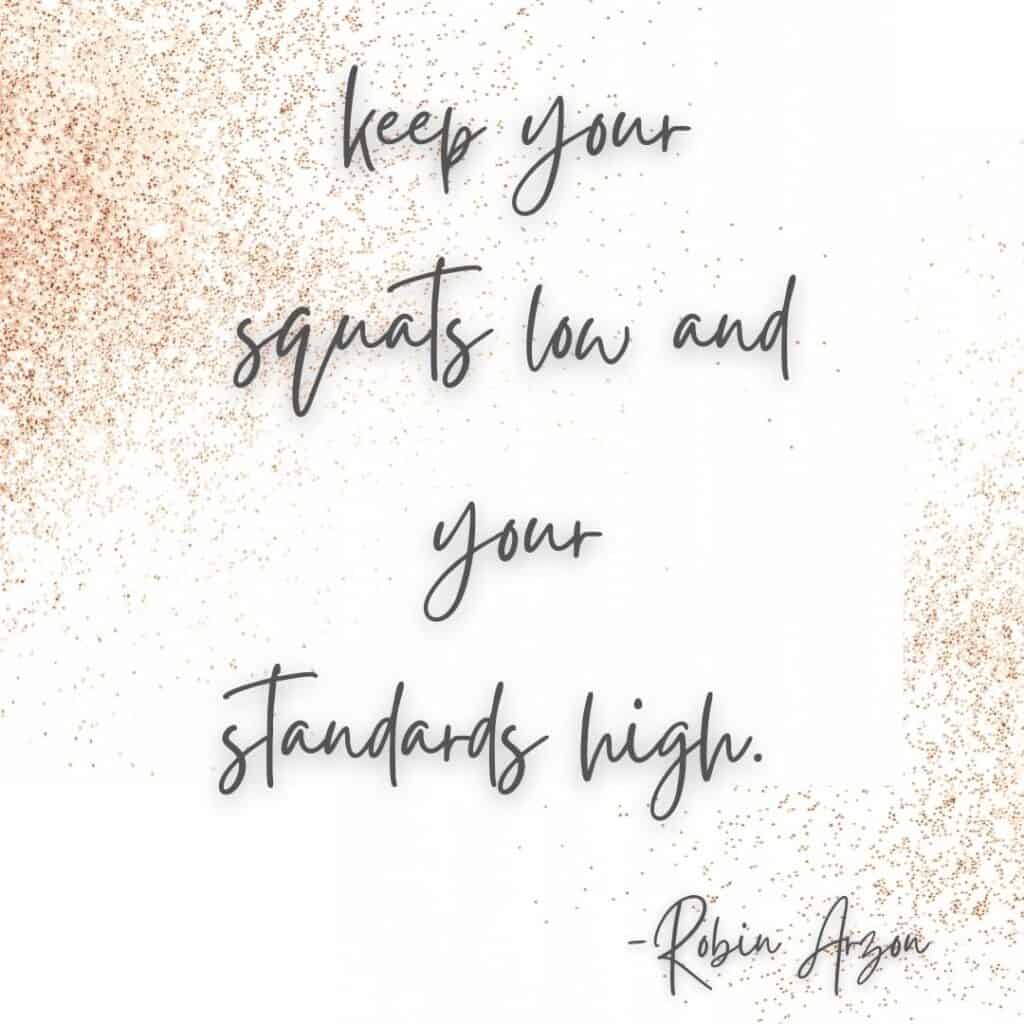 keep your
squats low and
your
standards high.
-Robin Arzon